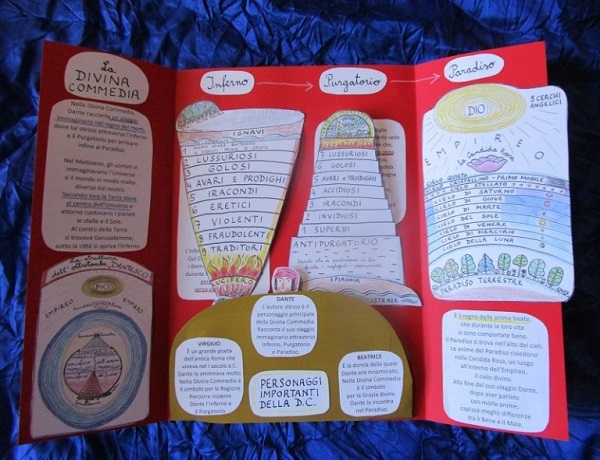 La
DIVINA
COMMEDIA
Nella Divina Commedia,
Dante racconta un viaggio
immaginario nel regno dei morti,
dove lui stesso attraversa l'Inferno
e il Purgatorio per arrivare
infine al Paradiso.
Nel Medioevo, gli uomini si
immaginavano l'Universo
e il mondo in modo molto
diverso dal nostro.
Secondo loro la Terra stava
al centro dell'Universo e
attorno ruotavano i pianeti,
le stelle e il Sole.
Al centro della Terra
si trovava Gerusalemme;
sotto la città si apriva l'Inferno.
La struttura
dell'oltretomba DANTESCO
DIO
EMPIREO
EMPIREO
Inferno
IGNAVI
2 LUSSURIOSI
3 GOLOSI
4 AVARI E PRODIGHI
5 IRACONDI
6 ERETICI
7 VIOLENTI
8 FRAUDOLENTI
9 TRADITORI
LUCIFERO
Purgatorio
7 LUSSURIOSI
6 GOLOSI
5 AVARI E PRODIGHI
4 ACCIDIOSI
3 IRACONDI
2 INVIDIOSI
1 SUPERBI
ANTIPURGATORIO
SPIAGGIA
Paradiso
DIO
9 CERCHI
ANGELICI
EMPIREO
La Candida Rosa
CIELO CRISTALLINO - PRIMO MOBILE
CIELO STELLATO
CIELO DI SATURNO
CIELO DI GIOVE
CIELO DI MARTE
CIELO DEL SOLE
CIELO DI VENERE
CIELO DI MERCURIO
CIELO DELLA LUNA
PARADISO TERRESTRE
È il regno delle anime beate,
che durante la loro vita
si sono comportate bene.
Il Paradiso si trova nell'alto dei cieli.
Le anime del Paradiso risiedono
nella Candida Rosa, un luogo
all'interno dell'Empireo,
il cielo divino.
Alla fine del suo viaggio Dante,
dopo aver parlato
con molte anime,
capisce meglio differenze
tra il Bene e il Male.
DANTE
L'autore stesso è il
personaggio principale
della Divina Commedia.
Racconta il suo viaggio
immaginario attraverso
Inferno, Purgatorio
e Paradiso.
VIRGILIO
È un grande poeta
dell'antica Roma che
viveva nel I secolo a.C.
Dante lo ammirava molto.
Nella Divina Commedia è
il simbolo per la Ragione.
Percorre insieme
Dante l'Inferno e
il Purgatorio
BEATRICE
È la donna della quale
Dante era innamorato.
Nella Divina Commedia
è il simbolo per
la Grazia divina.
Dante la incontra
nel Paradiso.
PERSONAGGI
IMPORTANTI
DELLA D.C.